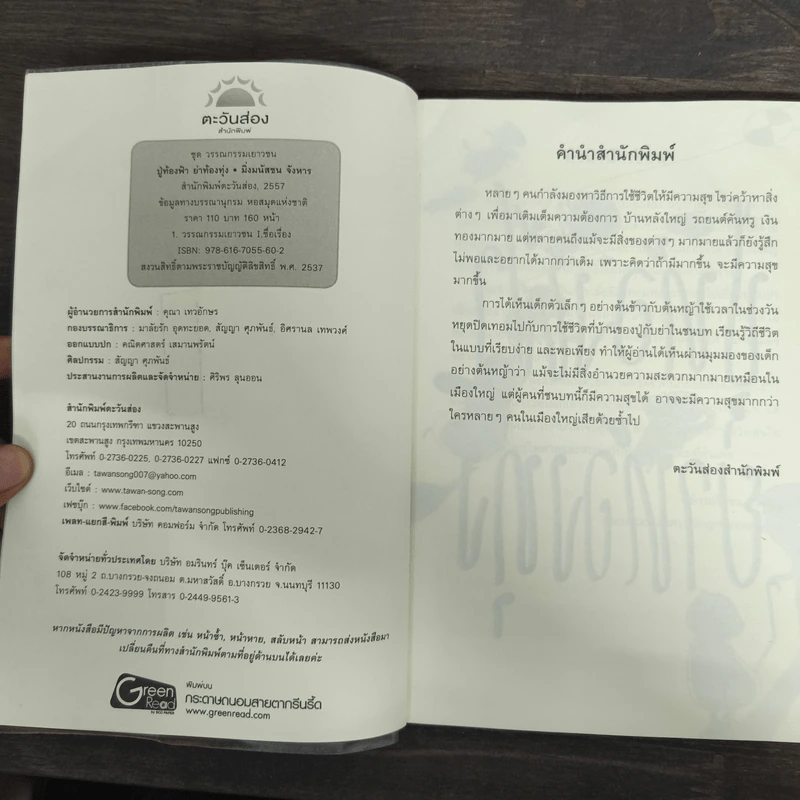 ตะวันส่อง
สำนักพิมพ์
ชุด วรรณกรรมเยาวชน
ปู่ท้องฟ้า ย่าท้องทุ่ง • มิ่งมนัสชน จังหาร
สำนักพิมพ์ตะวันส่อง, 2557
ข้อมูลทางบรรณานุกรม หอสมุดแห่งชาติ
ราคา 110 บาท 160 หน้า
1. วรรณกรรมเยาวชน I.ชื่อเรื่อง
ISBN: 978-616-7055-60-2
สงวนสิทธิ์ตามพระราชบัญญัติลิขสิทธิ์ พ.ศ. 2537
ผู้อำนวยการสำนักพิมพ์ : คุณา เทวอักษร
กองบรรณาธิการ : มาลัยรัก อุดทะยอด, สัญญา ศุภพันธ์, อิศรานล เทพวงค์
ออกแบบปก : คณิตศาสตร์ เสมานพรัตน์
ศิลปกรรม : สัญญา ศุภพันธ์
ประสานงานการผลิตและจัดจำหน่าย : ศิริพร ลุนออน
สำนักพิมพ์ตะวันส่อง
20 ถนนกรุงเทพกรีฑา แขวงสะพานสูง
เขตสะพานสูง กรุงเทพมหานคร 10250
โทรศัพท์ 0-2736-0225, 0-2736-0227 แฟกซ์ 0-2736-0412
อีเมล : tawansong007@yahoo.com
เว็บไซต์ : www.tawan-song.com
เฟซบุ๊ก : www.facebook.com/tawansongpublishing
เพลท-แยกสี-พิมพ์ บริษัท คอมฟอร์ม จำกัด โทรศัพท์ 0-2368-2942-7
จัดจำหน่ายทั่วประเทศโดย บริษัท อมรินทร์ บุ๊ค เซ็นเตอร์ จำกัด
108 หมู่ 2 ถ.บางกรวย-จงถนอม ต.มหาสวัสดิ์ อ.บางกรวย จ.นนทบุรี 11130
โทรศัพท์ 0-2423-9999 โทรสาร 0-2449-9561-3
หากหนังสือมีปัญหาจากการผลิต เช่น หน้าซ้ำ, หน้าหาย, สลับหน้า สามารถส่งหนังสือมา
เปลี่ยนคืนที่ทางสำนักพิมพ์ตามที่อยู่ด้านบนได้เลยค่ะ
Green
Read
by SCG PAPER
พิมพ์บน
กระดาษถนอมสายตากรีนรี้ด
www.greenread.com
คำนำสำนักพิมพ์
หลายๆ คนกำลังมองหาวิธีการใช้ชีวิตให้มีความสุข ไขว่คว้าหาสิ่ง
ต่างๆ เพื่อมาเติมเต็มความต้องการ บ้านหลังใหญ่ รถยนต์คันหรู เงิน
ทองมากมาย แต่หลายคนถึงแม้จะมีสิ่งของต่างๆ มากมายแล้วก็ยังรู้สึก
ไม่พอและอยากได้มากกว่าเดิม เพราะคิดว่าถ้ามีมากขึ้น จะมีความสุข
มากขึ้น
การได้เห็นเด็กตัวเล็กๆ อย่างต้นข้าวกับต้นหญ้าใช้เวลาในช่วงวัน
หยุดปิดเทอมไปกับการใช้ชีวิตที่บ้านของปู่กับย่าในชนบท เรียนรู้วิถีชีวิต
ในแบบที่เรียบง่าย และพอเพียง ทำให้ผู้อ่านได้เห็นผ่านมุมมองของเด็ก
อย่างต้นหญ้าว่า แม้จะไม่มีสิ่งอำนวยความสะดวกมากมายเหมือนใน
เมืองใหญ่ แต่ผู้คนที่ชนบทนี้ก็มีความสุขได้ อาจจะมีความสุขมากกว่า
ใครหลายๆ คนในเมืองใหญ่เสียด้วยซ้ำไป
ตะวันส่องสำนักพิมพ์